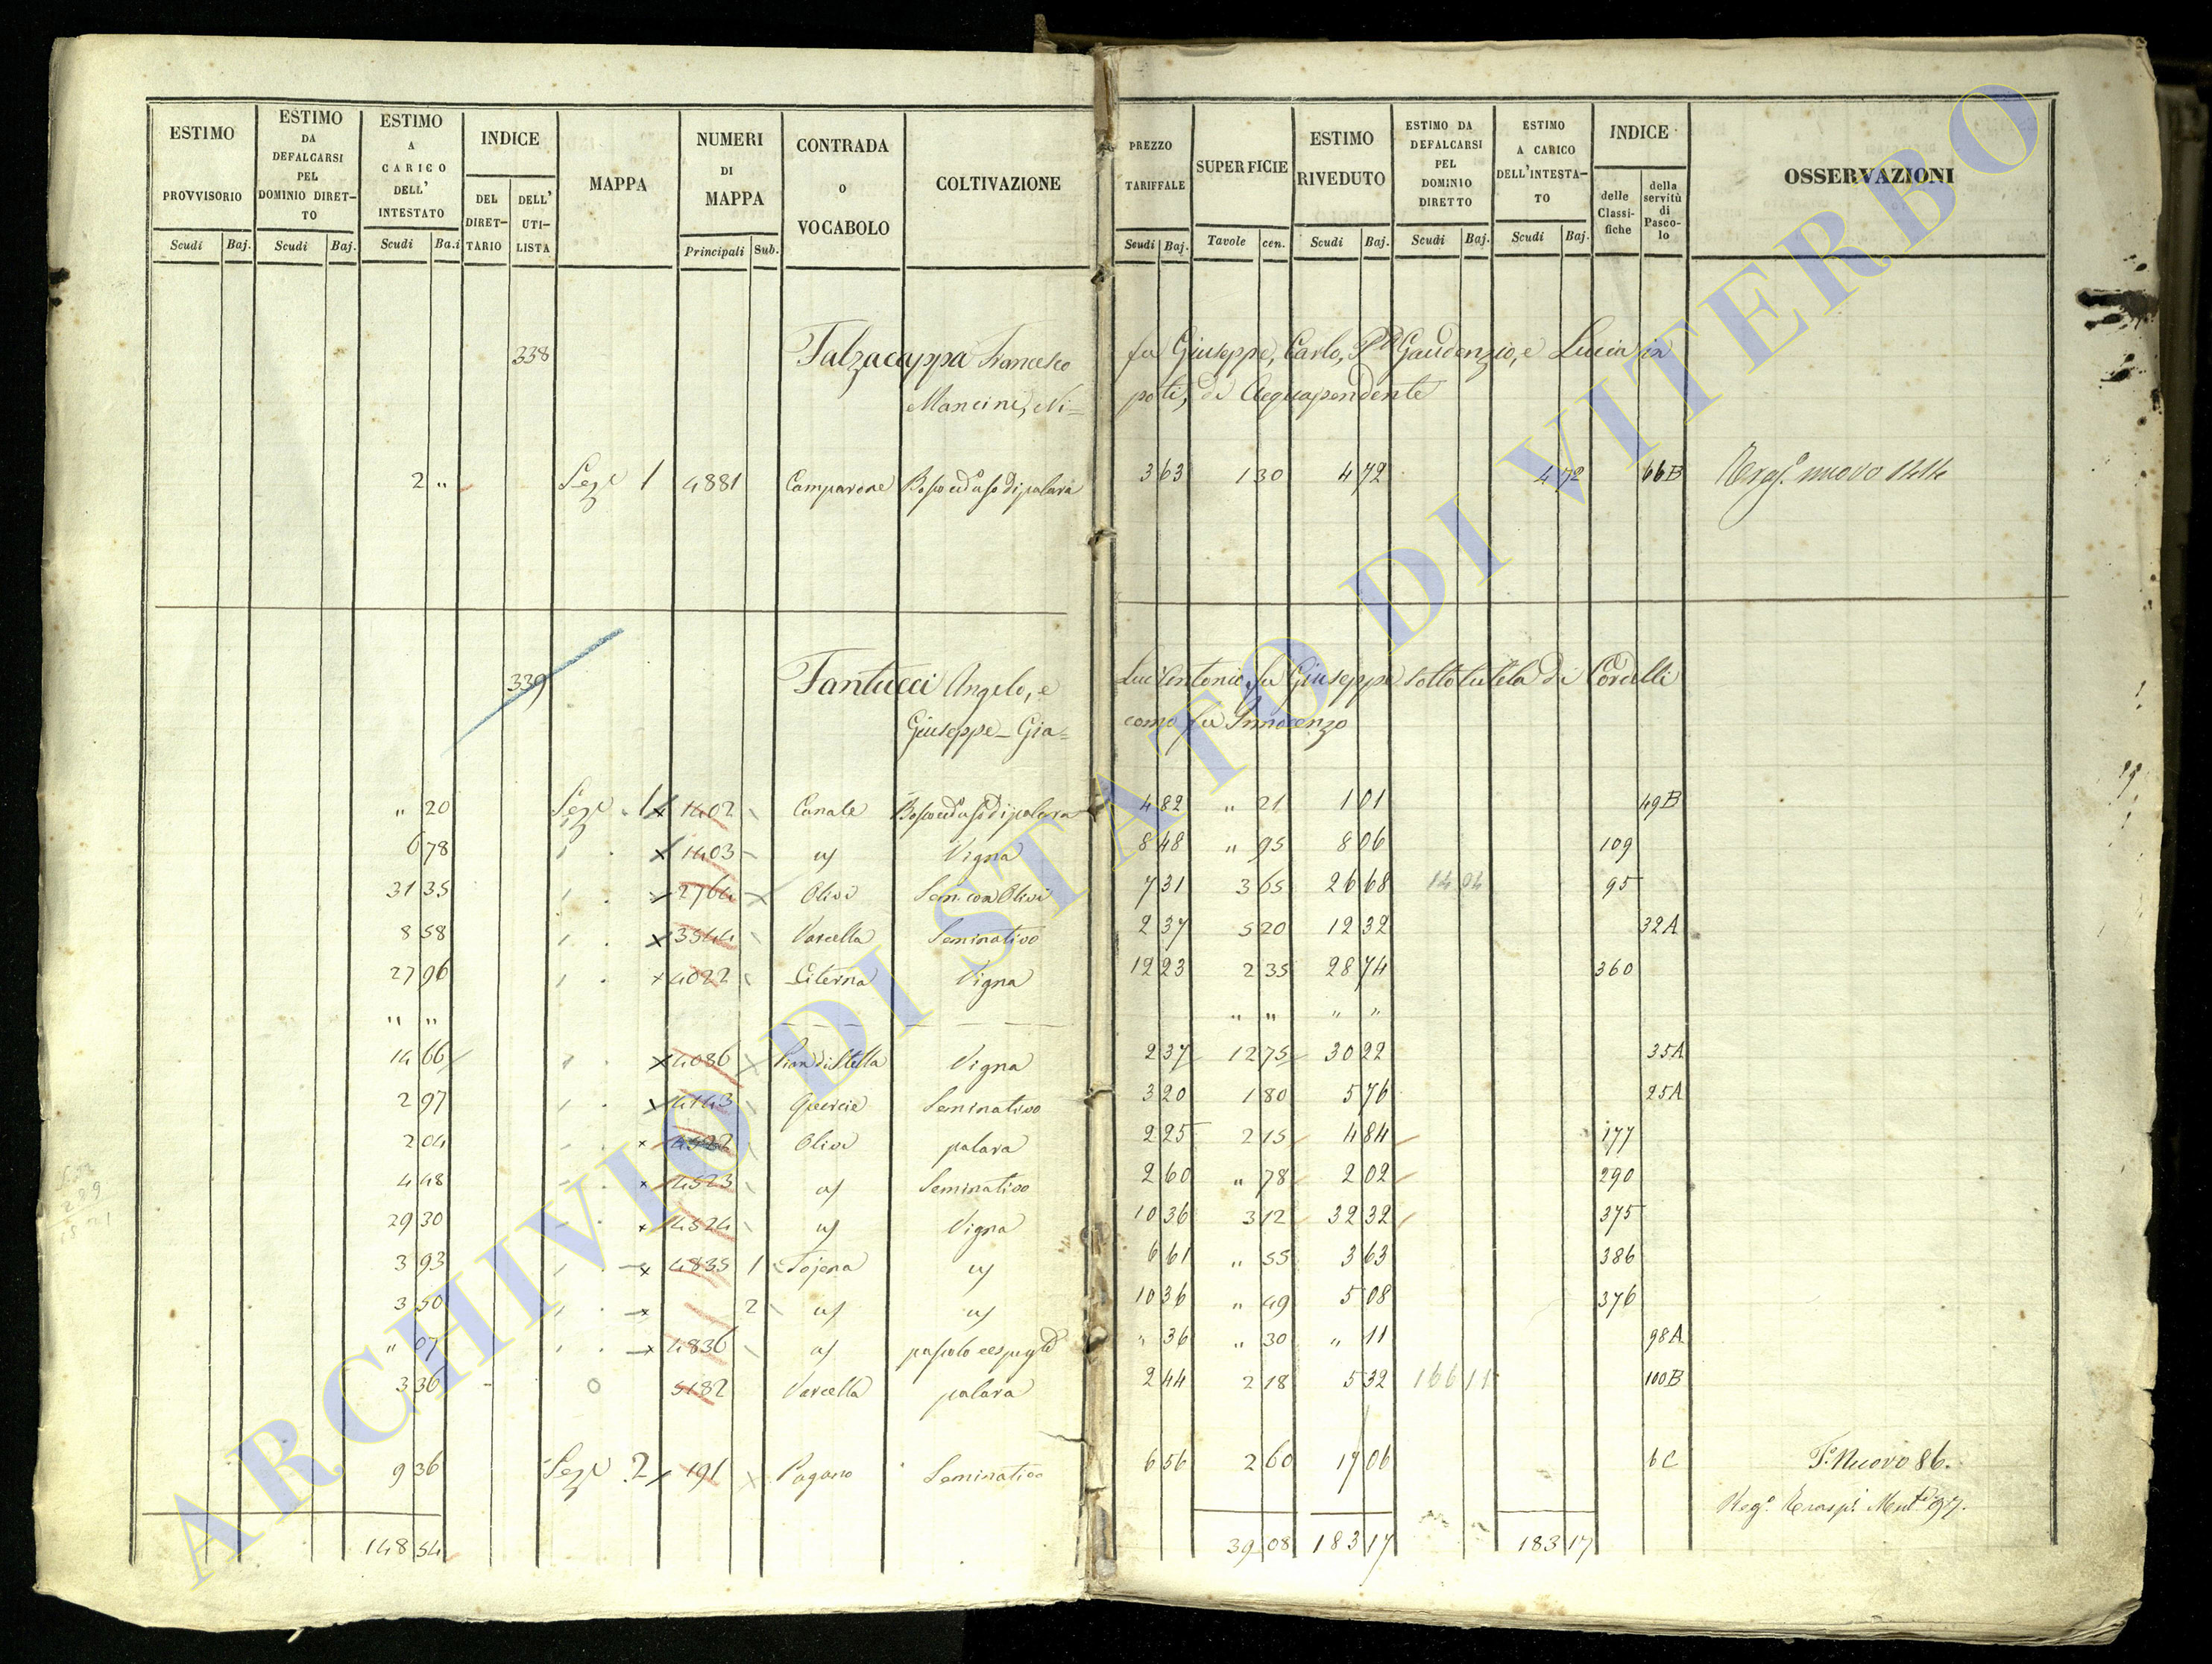 ESTIMO PROVVISORIO Scudi Baj.
ESTIMO DA DEFALCARSI PEL DOMINIO DIRET- TO Scudi Baj.
ESTIMO A CARICO DELL' INTESTATO Scudi Ba.i
INDICE DEL DIRET- TARIO DELL' UTI- LISTA
MAPPA
NUMERI DI MAPPA Principali Sub.
CONTRADA O VOCABOLO
COLTIVAZIONE
PREZZO TARIFFALE Scudi Baj.
SUPERFICIE Tavole cen.
ESTIMO RIVEDUTO Scudi Baj.
ESTIMO DA DEFALCARSI PEL DOMINIO DIRETTO Scudi Baj.
ESTIMO A CARICO DELL'INTESTA- TO Scudi Baj.
INDICE delle Classi- fiche della servitù di Pasco- lo
OSSERVAZIONI
338 Falzacappa Francesco fu Giuseppe, Carlo, Gaudenzio, e Lucia in
Mancini, Ni= poti, di Acquapendente
2 " Sez. 1 4881 Camparone Bosco ed uso di palara 3 63 1 30 4 72 4 72 66B nuovo
339 Fantucci Angelo, e Luc'Antonio fu Giuseppe sotto tutela di Cordelli
Giuseppe - Gia= como fu Innocenzo
" 20 Sez. 1 x 1402 Canale Bosco ed uso di palara 4 82 " 21 1 01 49B
6 78 x 1403 Vigna 8 48 " 95 8 06 109
31 35 x 2764 Olivi Sem. con Olivi 7 31 3 65 26 68 14 04 95
8 58 x 3544 Varcella Seminativo 2 37 5 20 12 32 32A
27 96 x 4022 Citerna Vigna 12 23 2 35 28 74 360
" " " " " "
14 66 x 4086 Pian di Stella Vigna 2 37 12 75 30 22 35A
2 97 x 4143 Quercie Seminativo 3 20 1 80 5 76 25A
2 04 x 4522 Olivi palara 2 25 2 15 4 84 177
4 48 x 4523 Seminativo 2 60 " 78 2 02 290
29 30 x 4524 Vigna 10 36 3 12 32 32 375
3 93 x 4835 1 Tojena 6 61 " 55 3 63 386
3 50 x 2 10 36 " 49 5 08 376
" 07 x 4836 pascolo " 36 " 30 " 11 98A
3 36 5182 Varcella palara 2 44 2 18 5 32 166 11 100B
9 36 Sez. 2 x 191 Pagano Seminativo 6 56 2 60 17 06 6C F. Nuovo 86.
Reg.
148 54 39 08 183 17 183 17
ARCHIVIO DI STATO DI VITERBO